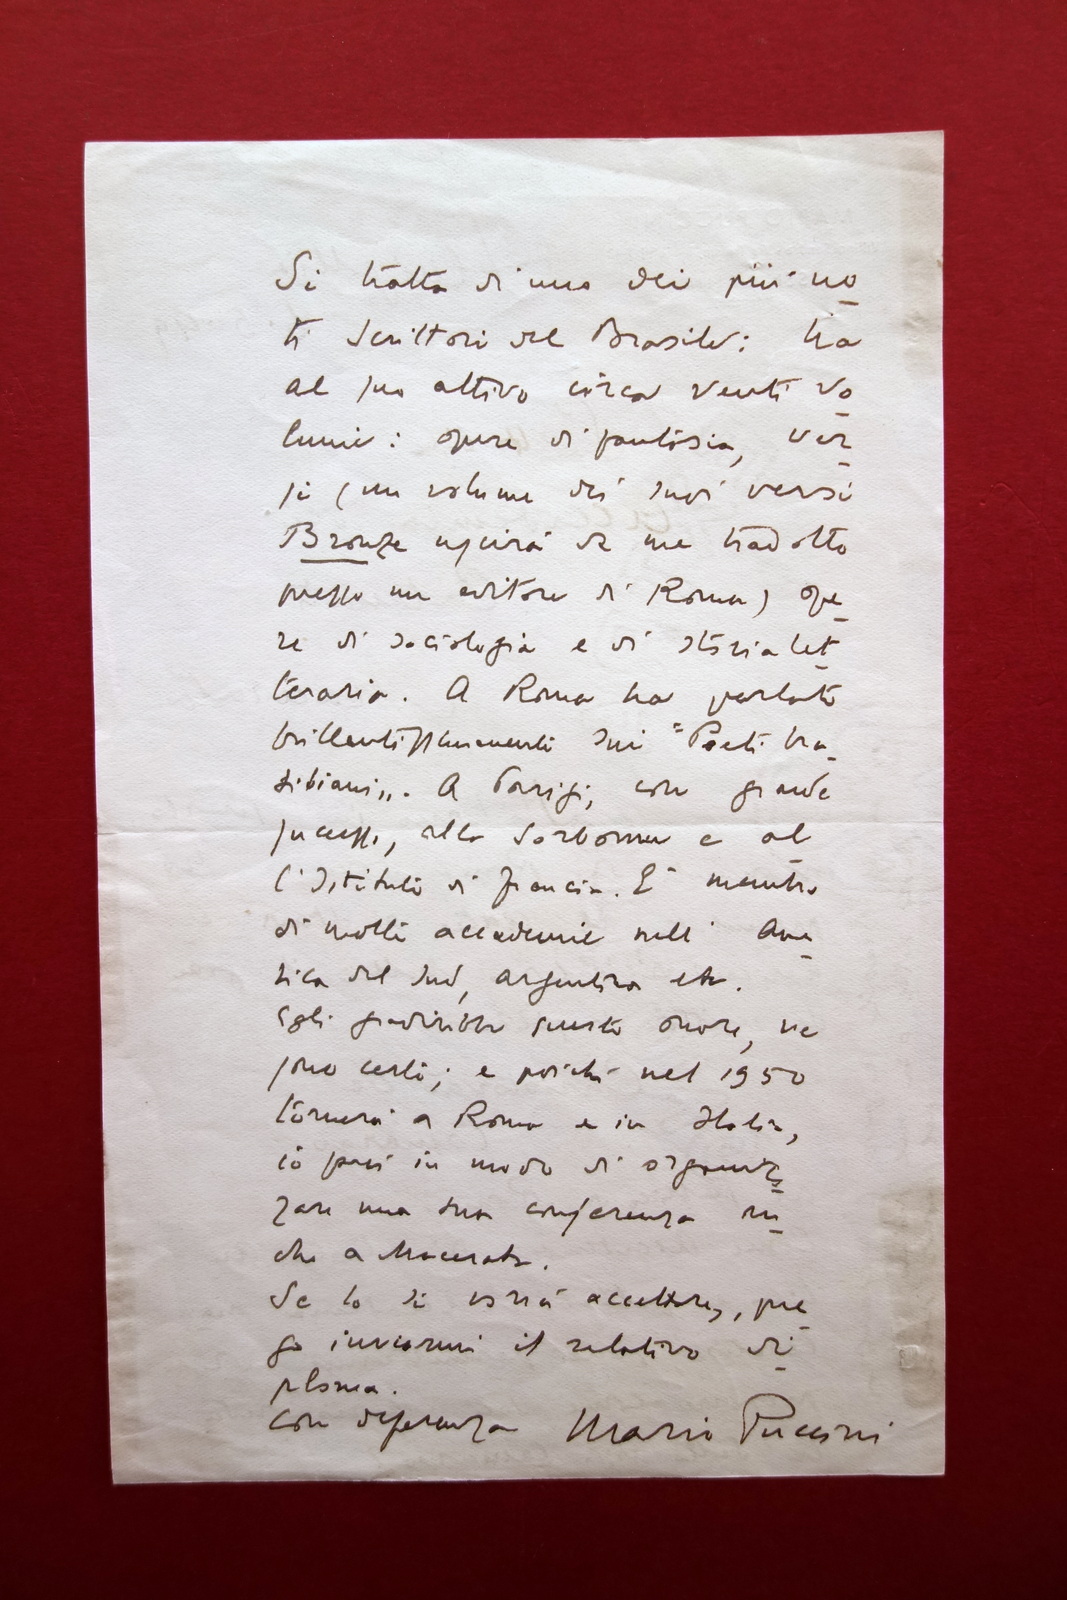 Si tratta di uno dei più no
ti scrittori del Brasile: ha
al suo attivo circa venti vo
lumi: opere di fantasia, ver
si (un volume dei suoi versi
Bronze uscirà da me tradotto
presso un editore di Roma) ope
re di sociologia e di storia let
teraria. A Roma ha parlato
brillantissimamente sui "Poeti bra
siliani". A Parigi, con grande
successo, alla Sorbonna e al
l'Istituto di Francia. E' membro
di molte accademie nell' Ame
rica del Sud, argentina etc.
Egli gradirebbe questo onore, ne
sono certo; e poiché nel 1950
tornerà a Roma e in Italia,
in modo di organiz
zare una sua conferenza an
che a Macerata.
Se lo si vorrà accettare, pre
go inviarmi il relativo di
ploma.
Con deferenza Mario Puccini